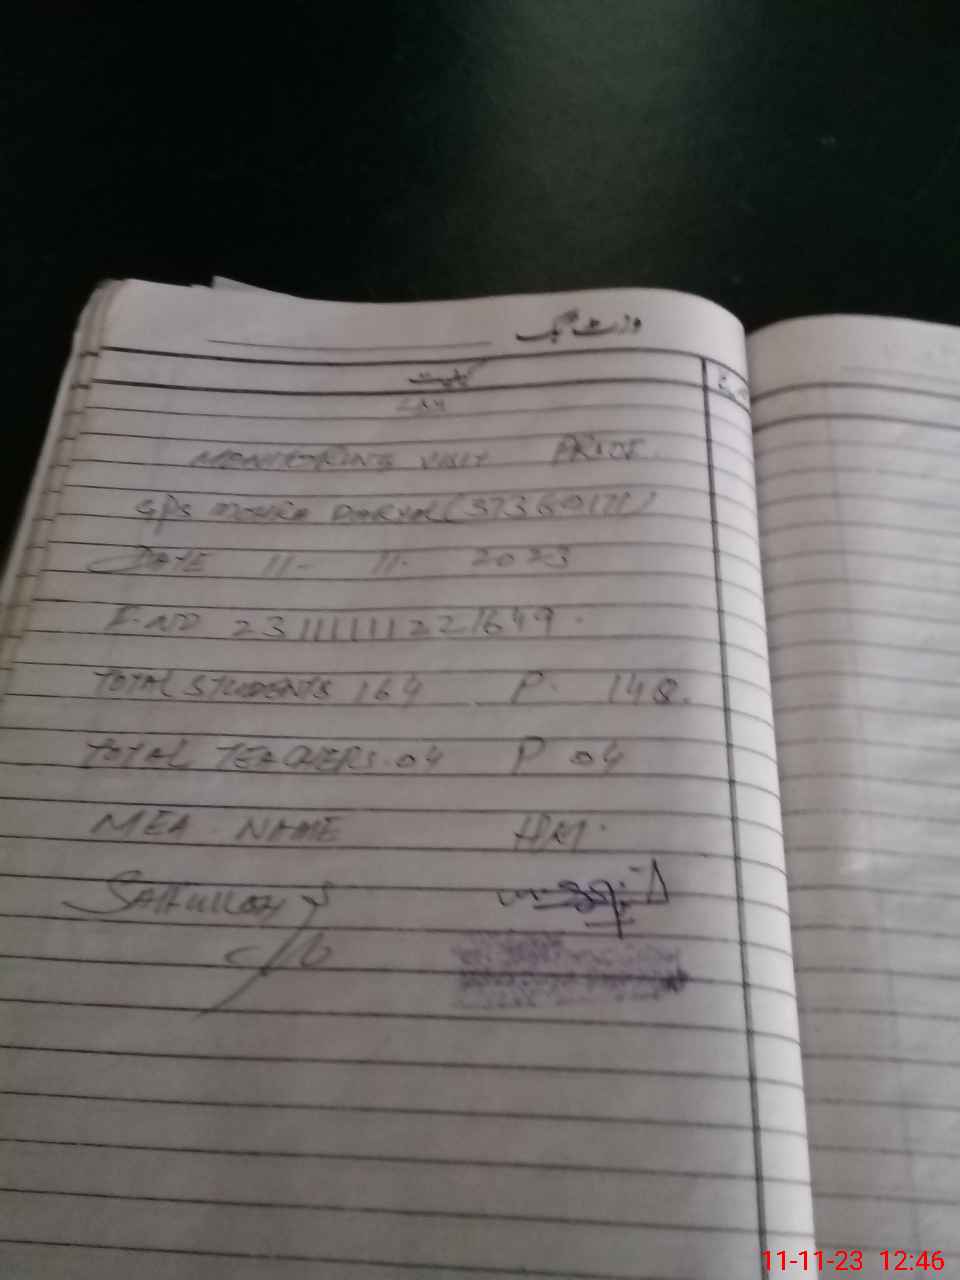 وزٹ بک
کیفیت
786
MONITORING VISIT PROOF
GPS MOHRA DARYAL (37360171)
DATE 11- 11- 2023
E-NO 231111111221649.
TOTAL STUDENTS 164 P. 148.
TOTAL TEACHERS. 04 P 04
MEA NAME HM.
SAIFULLAH
11-11-23 12:46